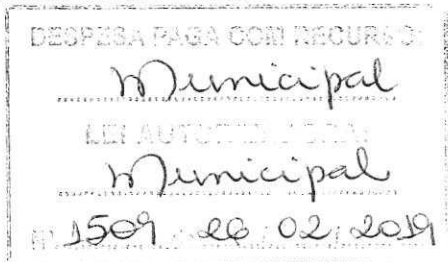 DESPESA PAGA COM RECURSO:
Municipal
LEI AUTORIZADORA:
Municipal
Nº 1509 26 / 02 / 2019